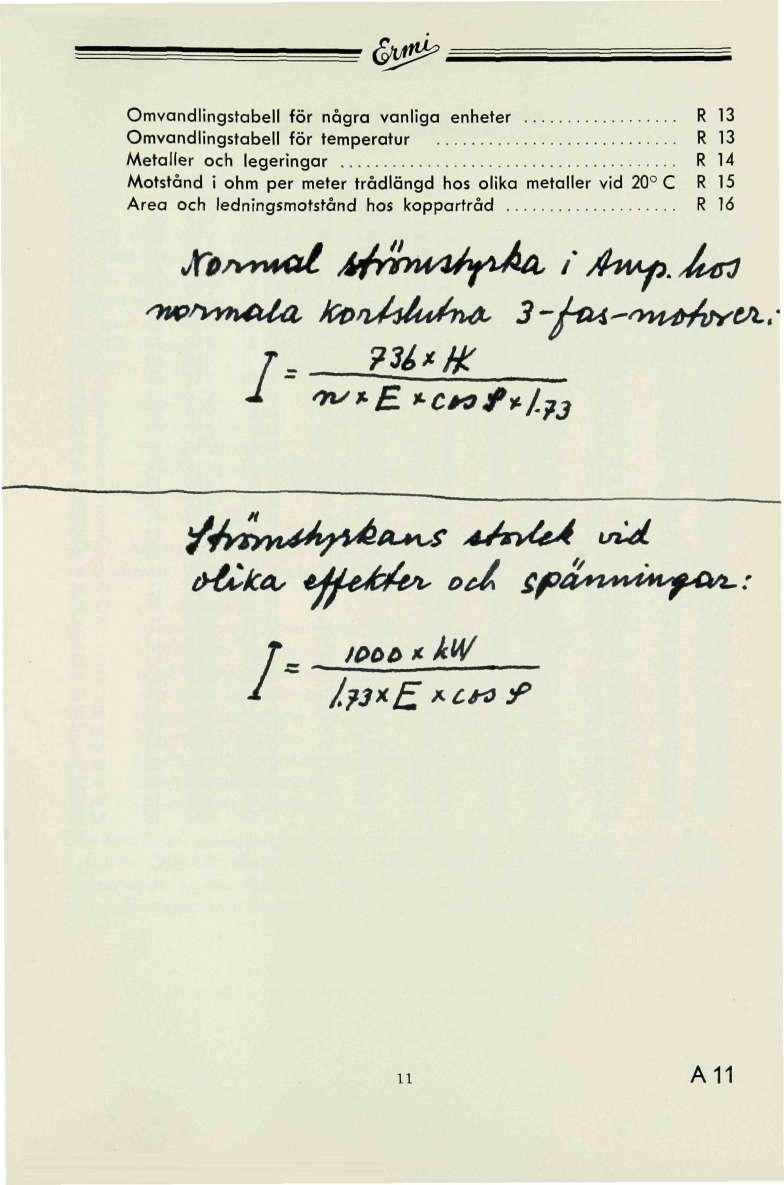 Ermi
Omvandlingstabell för några vanliga enheter .................. R 13
Omvandlingstabell för temperatur ............................ R 13
Metaller och legeringar ....................................... R 14
Motstånd i ohm per meter trådlängd hos olika metaller vid 20° C R 15
Area och ledningsmotstånd hos koppartråd .................... R 16
Normal strömstyrka i Amp. hos
normala kortslutna 3-fas-motorer:
I = 736 × HK
n × E × cos φ × 1.73
Strömstyrkans storlek vid
olika effekter och spänningar:
I = 1000 × kW
1.73 × E × cos φ
11
A 11